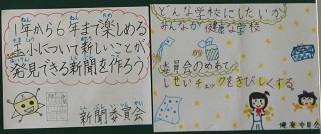 1年から6年まで楽しめる
正小について新しいことが
発見できる新聞を作ろう
新聞委員会
どんな学校にしたいか
みんなが健康な学校
委員会のめあて
しせいチェックをきびしくする
健康委員会